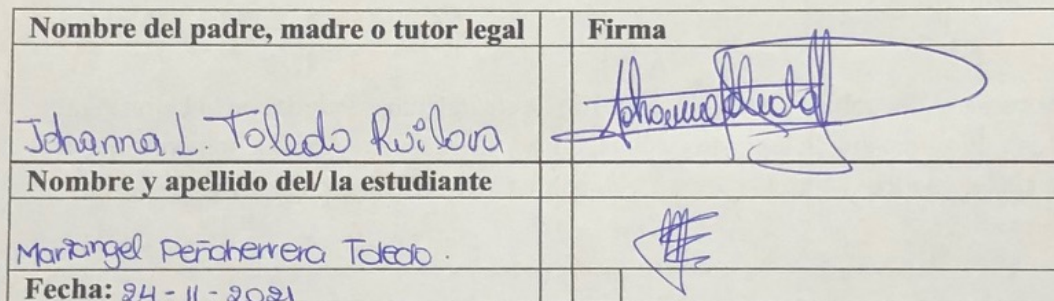 Nombre del padre, madre o tutor legal Firma
Johanna L. Toledo Ruilova Johanna Toledo
Nombre y apellido del/ la estudiante
Mariangel Peñaherrera Toledo.
Fecha: 24 - 11 - 2021